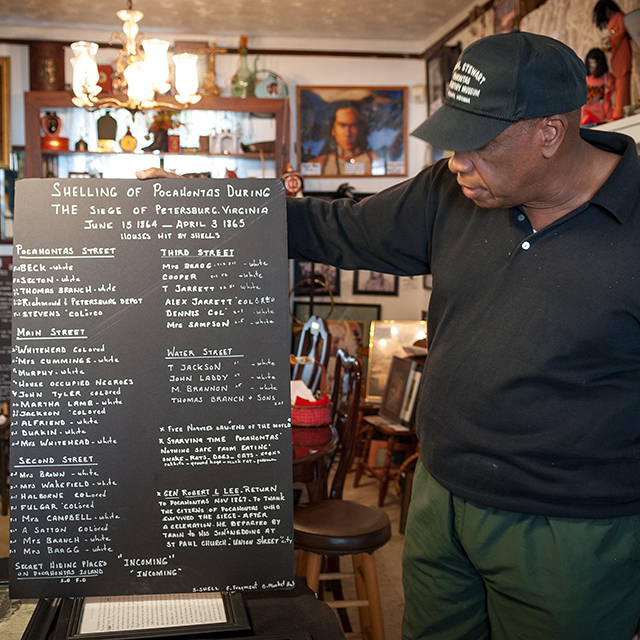 SHELLING OF POCAHONTAS DURING
THE SIEGE OF PETERSBURG, VIRGINIA
JUNE 15 1864 — APRIL 3 1865
HOUSES HIT BY SHELLS
POCAHONTAS STREET
BECK - white
SECTON - white
THOMAS BRANCH - white
RICHMOND & PETERSBURG DEPOT
STEVENS 'COLORED
MAIN STREET
WHITEHEAD COLORED
MRS CUMMINGS - white
MURPHY - white
HOUSE OCCUPIED NEGROES
JOHN TYLER COLORED
MARTHA LAMB - white
JACKSON 'COLORED
ALFRIEND - white
DURKIN - white
MRS WHITEHEAD - white
SECOND STREET
MRS BROWN - white
MRS WAKEFIELD - white
HALBORNE COLORED
FULGAR 'COLORED
MRS CAMPBELL - white
A SATTON COLORED
MRS BRANCH - white
MRS BRAGG - white
SECRET HIDING PLACES
ON POCAHONTAS ISLAND
THIRD STREET
MRS BRAGG - white
COOPER - white
T JARRETT - white
ALEX JARRETT 'COLORED
DENNIS COL'
MRS SAMPSON - white
WATER STREET
T JACKSON - white
JOHN LADDY - white
M BRANNON - white
THOMAS BRANCH & SONS
x FREE NEGROES OF THE WORLD
x STARVING TIME POCAHONTAS'
NOTHING SAFE FROM EATING'
SNAKE - RATS, DOGS, CATS
RABBITS - GROUND HOGS - MUSK RAT - POSSUM
x GEN ROBERT E LEE. RETURN
TO POCAHONTAS NOV 1867. TO THANK
THE CITIZENS OF POCAHONTAS WHO
SURVIVED THE SIEGE - AFTER
A CELEBRATION. HE DEPARTED BY
TRAIN TO HIS SON'S WEDDING AT
ST PAUL CHURCH. UNION STREET 'CITY
"INCOMING"
"INCOMING"
S-SHELL F. FRAGMENT
STEWART
POCAHONTAS
MUSEUM